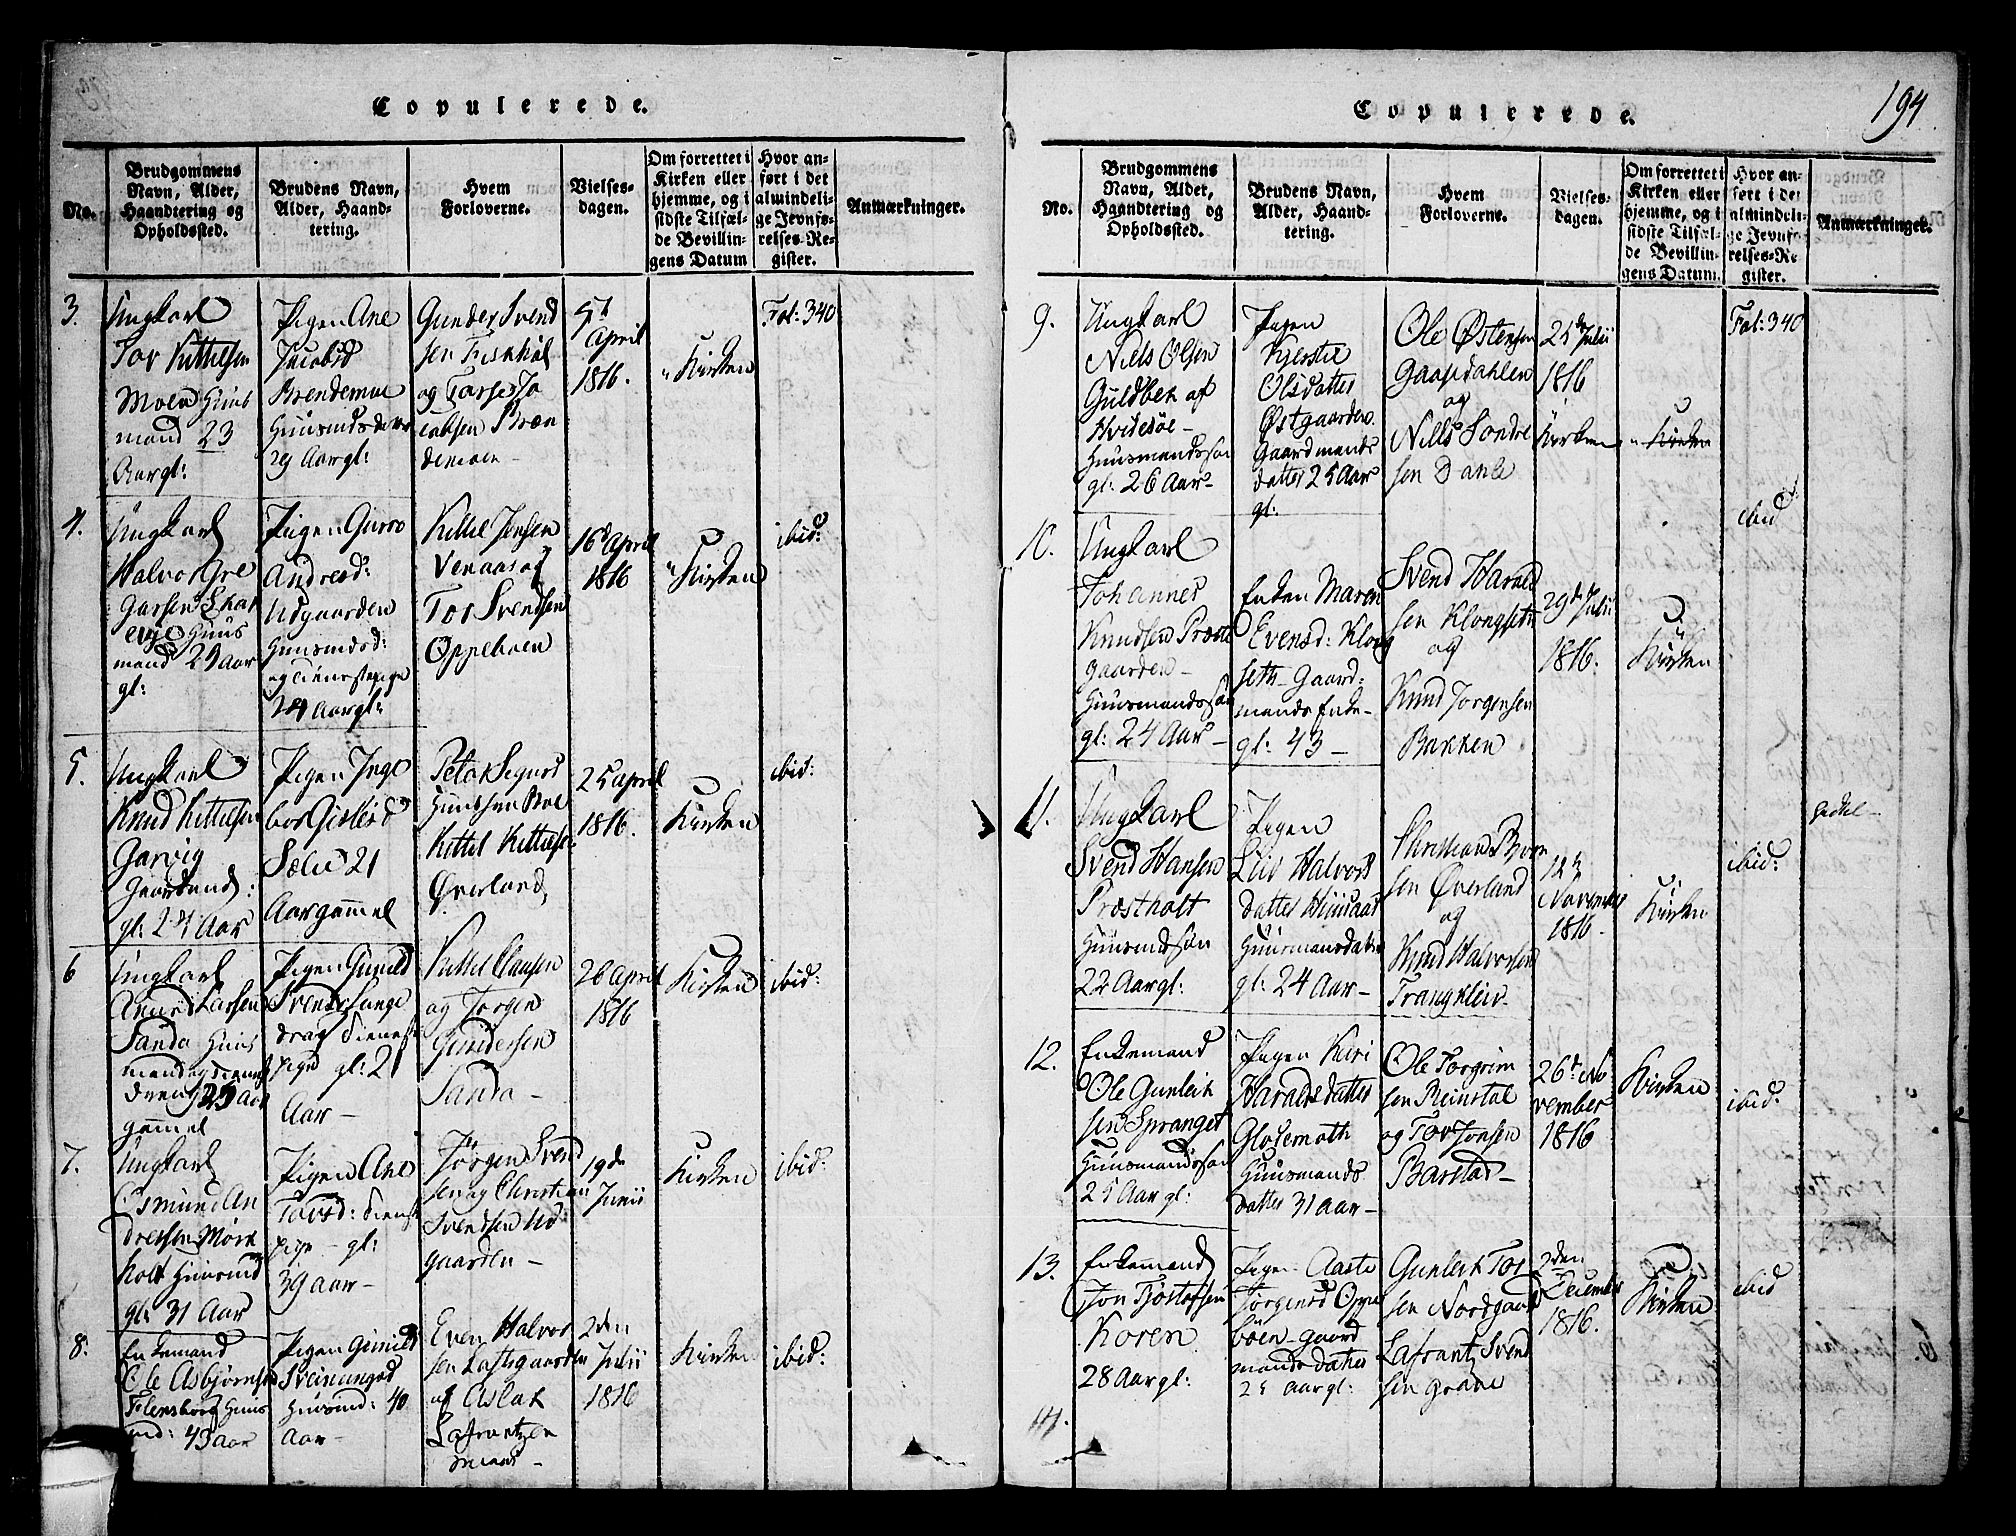 Copulerede.
No.
Brudgommens
Navn, Alder,
Haandtering og
Opholdssted.
Brudens Navn,
Alder, Haand-
tering.
Hvem
Forloverne.
Vielses-
dagen.
Om forrettet i
Kirken eller
hjemme, og i
sidste Tilfæl-
de Bevillin-
gens Datum
Hvor an-
ført i det
almindeli-
ge Jevnfø-
relses-Re-
gister.
Anmærkninger.
3.
Ungkarl
Tor Kittilsen
Moen Huus
mand 23
Aar gl:
Pigen Ane
Jacobsd
Brendemoe
29 Aar gl:
Gunder Svend
sen Fiskhøl
og Tarje Ja
cobsen Bræn
demoen
5t
April
1816.
Kirken
Fol: 340
4.
Ungkarl
Halvor Gre
gersen Skar
Huus
mand 29 Aar
gl:
Pigen Guroo
Andreasd:
Udgaarden
Huusmdsd:
og tienestepige
24 Aar gl:
Kittel Jensen
Venaas og
Tor Svendsen
Oppeboen
16d April
1816
Kirken
ibid:
5.
Ungkarl
Knud Kittilsen
Garvig
gl: 24 Aar
Pigen Inge
bor Gislesd
Sælid 21
Aar gammel
Peter Sigurd
Kittel Kittels:
Øverland
25 April
1816.
Kirken
ibid:
6
Ungkarl
Anund Larsen
Sanda Huus
mand og tieneste
dreng 25 Aar
gammel
Pigen Gunild
Svends Lange
drag Tieneste
pige gl: 21
Aar –
Kittel Clausen
og Jørgen
Gundersen
Sanda –
26 April
1816
Kirken
ibid:
7.
Ungkarl
Osmund An
dresen Mørk
holt Huusmd
gl: 31 Aar
Pigen Ane
Tovsd: Tienest
pige – gl:
39 Aar –
Jørgen Svend
sen og Christian
Svendsen Ud
gaarden –
19de
Junii
Kirken
ibid:
8.
Enkemand
Ole Asbjørnsen
Flensborg Huus
md: 43 Aar
Pigen Gunild
Sveinungsd
Huusmd: 40
Aar –
Even Halvor
sen Loftsgaarden
og Aslak
Lafrantzen
2den
Julii
1816
Kirken
ibid:
Copulerede.
194
No.
Brudgommens
Navn, Alder,
Haandtering og
Opholdssted.
Brudens Navn,
Alder, Haand-
tering.
Hvem
Forloverne.
Vielses-
dagen.
Om forrettet i
Kirken eller
hjemme, og i
sidste Tilfæl-
de Bevillin-
gens Datum.
Hvor an-
ført i det
almindeli-
ge Jevnfø-
relses-Re-
gister.
Anmærkninger.
9.
Ungkarl
Niels Olsen
Guldbek af
Hvidesøe –
Huusmandssøn
gl: 26 Aar –
Pigen
Kjerstie
Olsdatter
Østgaarden
Gaardmands
datter 25 Aar
gl:
Ole Østensen
Gaasedahlen
og
Niels Sondre
sen Dahle
25de Julii
1816
Kirken
Kirken
Fol: 340
10.
Ungkarl
Johannes
Knudsen Præste
gaarden –
Huusmandssøn
gl: 24 Aar –
Enken Maren
Evensd: Klong
seth – Gaard:
mands Enke –
gl: 43 –
Svend Harald
sen Klongseth
og
Knud Jørgensen
Bakken
29de Julii
1816.
Kirken
ibid
11.
Ungkarl
Svend Hansen
Præstholt
Huusmdsøn
22 Aar gl:
Pigen
Liv Halvors
datter Huusaas
Huusmansdatter
gl: 24 Aar –
Christian Bjørn
sen Øverland
og
Knud Halvorsen
Trangkleiv –
12te
November
1816.
Kirken
ibid:
12.
Enkemand
Ole Gunleik
sen Spranget
Huusmandssøn
25 Aar gl:
Pigen Kari
Haralsdatter
Glosemoth
Huusmands
datter 31 Aar –
Ole Torgrim
sen Reinstal
og Tov Jonsen
Barstad –
26de No
vember
1816
Kirken
ibid:
13.
Enkemand
Jon Tjøstolfsen
Koren
28 Aar gl:
Pigen Aaste
Jørgensd Oppe
boen – gaard
mands datter
25 aar gl:
Gunleik Tor
sen Nordgaard
Lafrantz Svend
sen Grave
2den
December
1816.
Kirken
ibid
14.